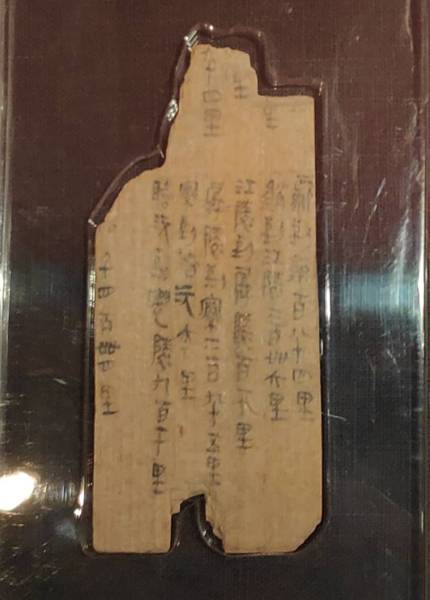 里
里
十四里
鄢到銷百八十四里
銷到江陵二百卌六里
江陵到孱陵百一十里
孱陵到索二百九十五里
索到臨沅六十里
臨沅到遷陵九百一十里
千四百卌里